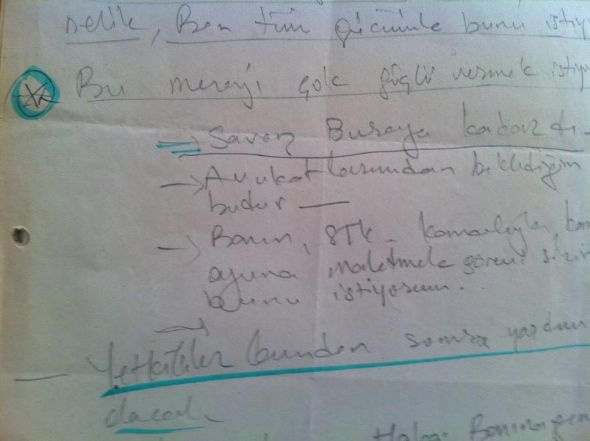 delik, Ben tüm gücümle bunu istiyo
Bu mesajı çok güçlü vermek istiyo
→ Savaş Buraya kadardı.
→ Avukatlarımdan beklediğim
budur —
→ Basın, STK. kamuoyla, kam
oyuna maletmek görevi sizin
bunu istiyorum..
→
— Yetkililer bundan sonra yardım
olacak